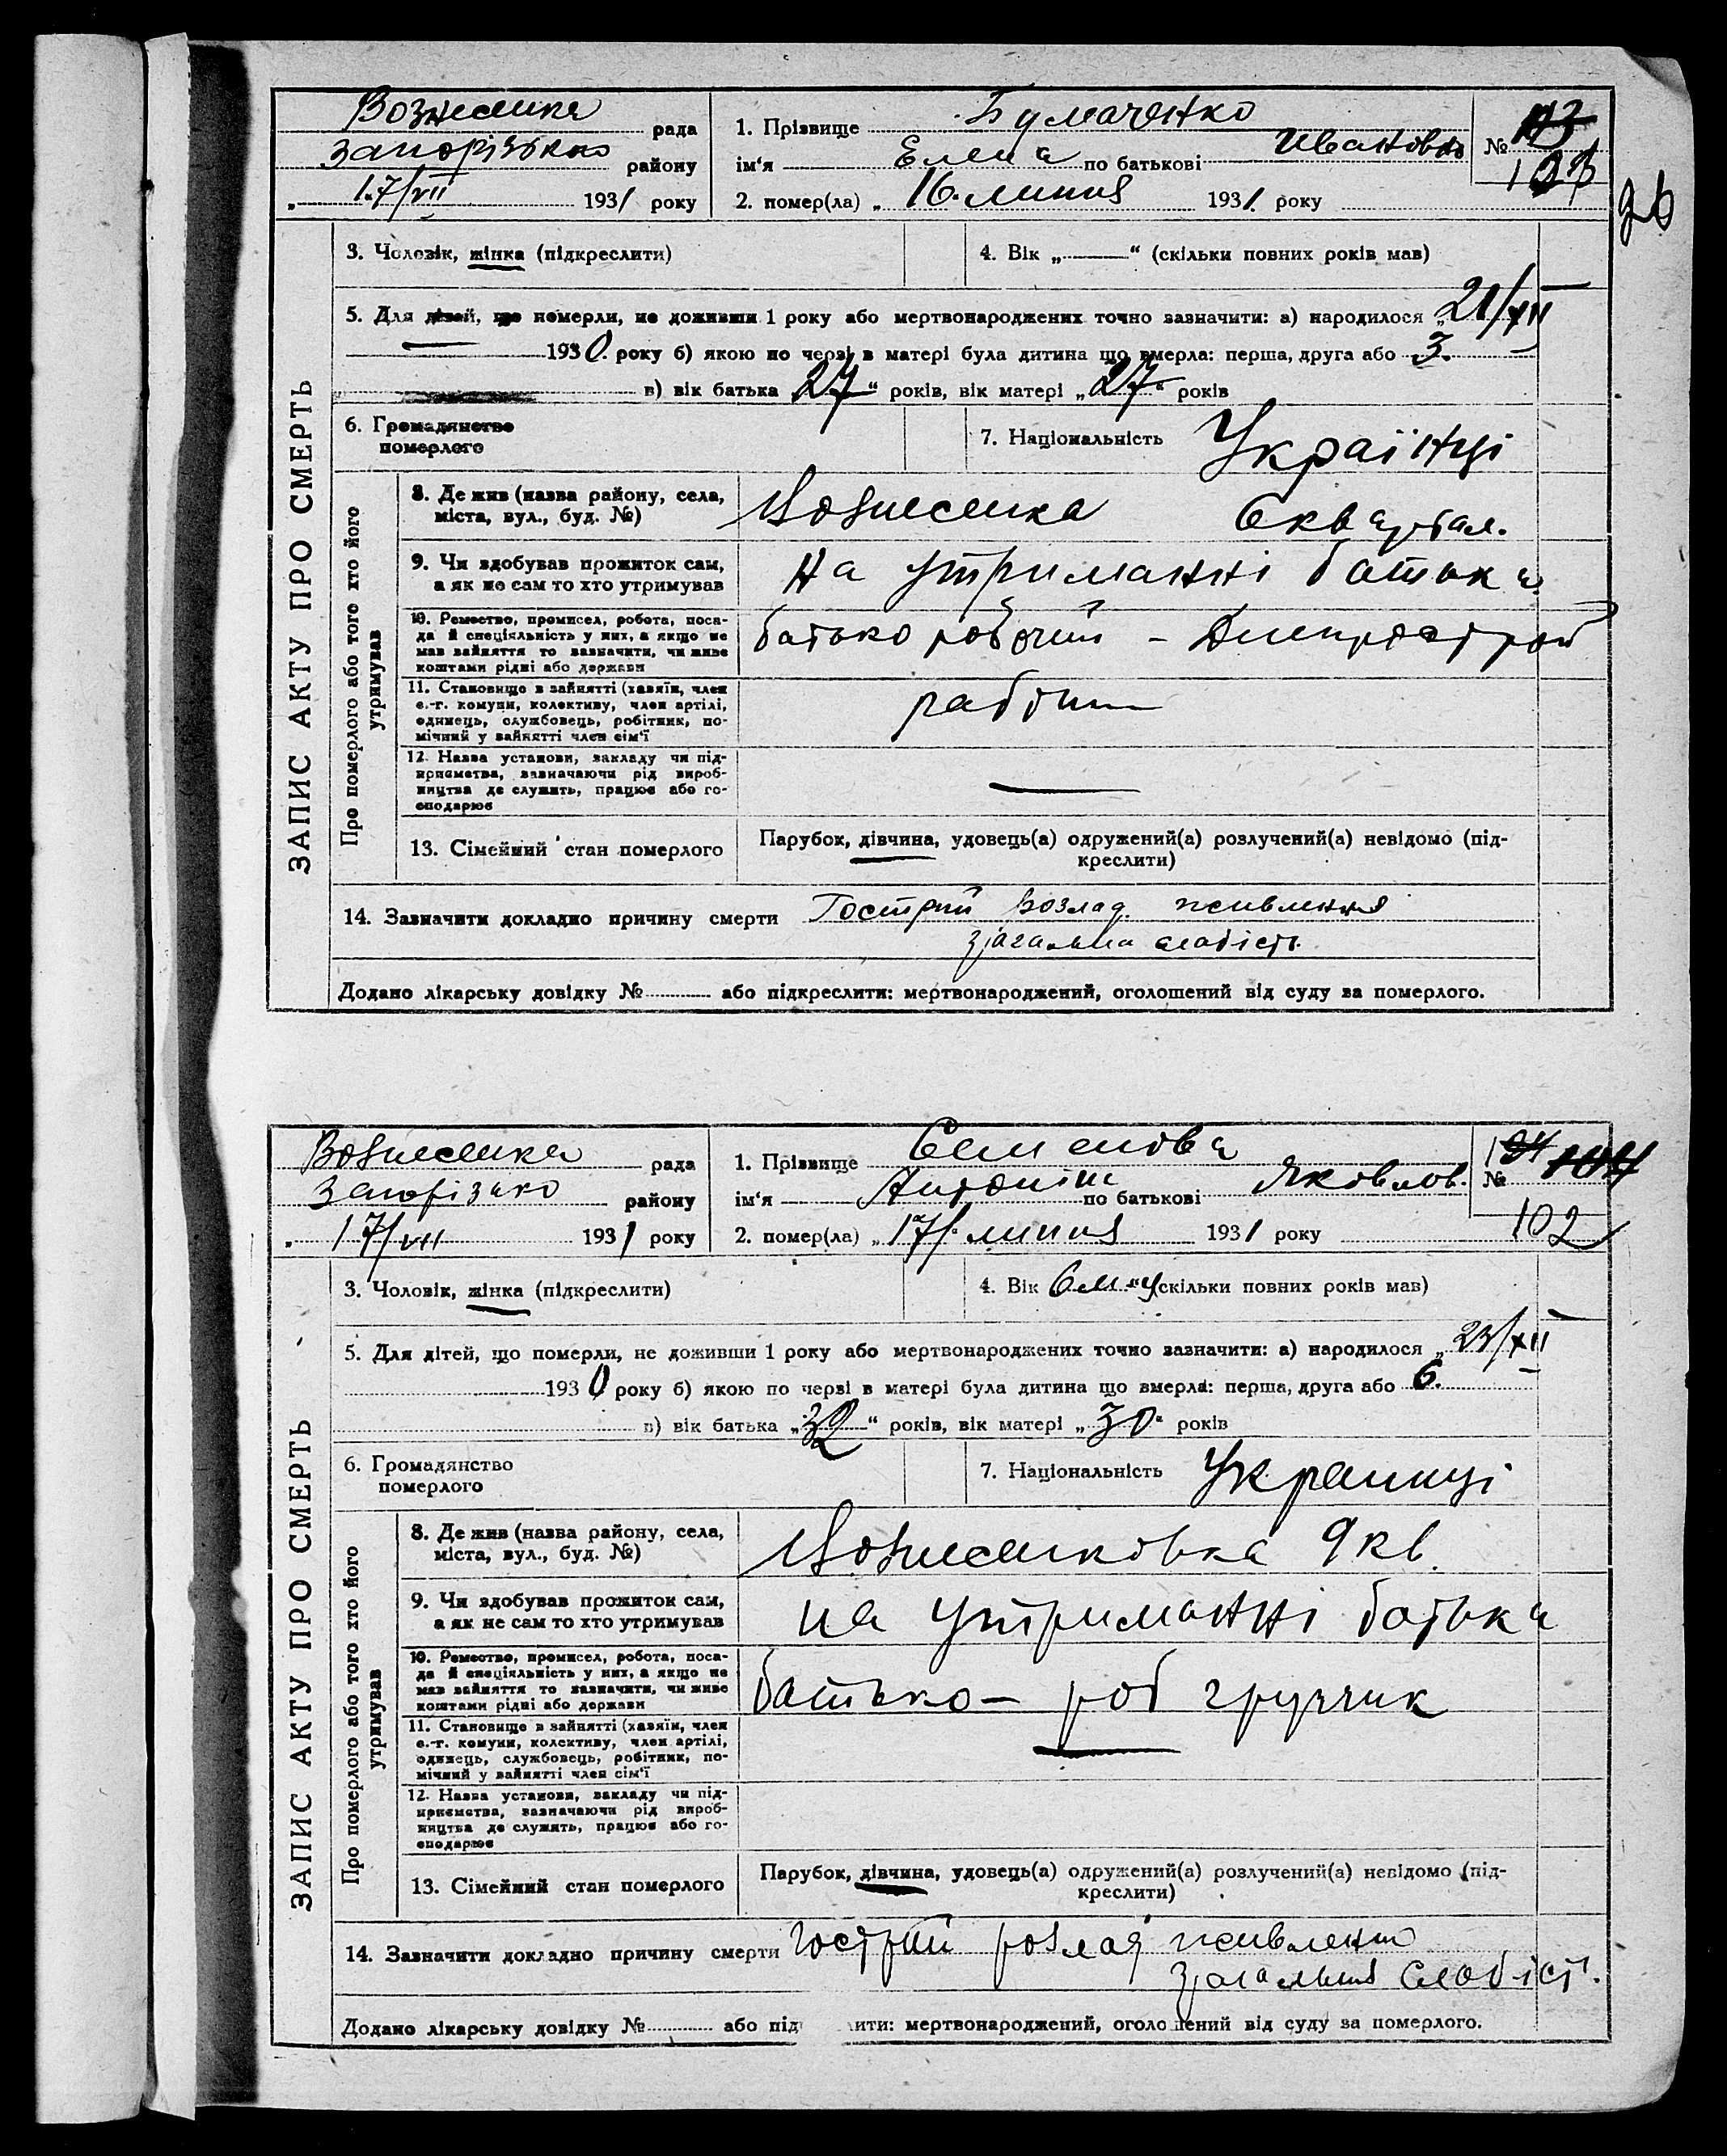 Вознесенка рада
Запорізько району
„ 17/VII 1931 року
1. Прізвище Бумаченко
ім'я Елена по батькові Ивановна
2. помер(ла) „ 16 липня 1931 року
№ 103
96
3. Чоловік, жінка (підкреслити)
4. Вік „ — “ (скільки повних років мав)
5. Для дітей, що померли, не доживши 1 року або мертвонароджених точно зазначити: а) народилося „ 21/XII
1930 року б) якою по черзі в матері була дитина що вмерла: перша, друга або 3.
в) вік батька „27“ років, вік матері „27“ років
6. Громадянство
померлого
7. Національність Українці
ЗАПИС АКТУ ПРО СМЕРТЬ
Про померлого або того хто його
утримував
8. Де жив (назва району, села,
міста, вул., буд. №)
Вознесенка 6 квартал.
9. Чи здобував прожиток сам,
а як не сам то хто утримував
на утриманні батька
10. Ремество, промисел, робота, поса-
да й спеціяльність у них, а якщо не
мав зайняття то зазначити, чи живе
коштами рідні або держави
батько робочий – Днепрострой
11. Становище в зайнятті (хазяїн, член
с.-г. комуни, колективу, член артілі,
одинець, службовець, робітник, по-
мічний у зайнятті член сім'ї
12. Назва установи, закладу чи під-
приємства, зазначаючи рід вироб-
ництва де служить, працює або го-
сподарює
—
13. Сімейний стан померлого
Парубок, дівчина, удовець(а) одружений(а) розлучений(а) невідомо (під-
креслити)
14. Зазначити докладно причину смерти Гострий розлад живлення
загальна слабість.
Додано лікарську довідку № або підкреслити: мертвонароджений, оголошений від суду за померлого.
Вознесенка рада
Запорізько району
„ 17/VII 1931 року
1. Прізвище Семенова
ім'я Антонін по батькові Яковлев.
2. помер(ла) „ 17/ липня 1931 року
№ 104
102
3. Чоловік, жінка (підкреслити)
4. Вік 6 м (скільки повних років мав)
5. Для дітей, що померли, не доживши 1 року або мертвонароджених точно зазначити: а) народилося „ 23/XII
1930 року б) якою по черзі в матері була дитина що вмерла: перша, друга або 6.
в) вік батька „32“ років, вік матері „30“ років
6. Громадянство
померлого
7. Національність Украинці
ЗАПИС АКТУ ПРО СМЕРТЬ
Про померлого або того хто його
утримував
8. Де жив (назва району, села,
міста, вул., буд. №)
Вознесенковка 9 кв.
9. Чи здобував прожиток сам,
а як не сам то хто утримував
на утриманні батька
10. Ремество, промисел, робота, поса-
да й спеціяльність у них, а якщо не
мав зайняття то зазначити, чи живе
коштами рідні або держави
батько – роб грузчик
11. Становище в зайнятті (хазяїн, член
с.-г. комуни, колективу, член артілі,
одинець, службовець, робітник, по-
мічний у зайнятті член сім'ї
12. Назва установи, закладу чи під-
приємства, зазначаючи рід вироб-
ництва де служить, працює або го-
сподарює
13. Сімейний стан померлого
Парубок, дівчина, удовець(а) одружений(а) розлучений(а) невідомо (під-
креслити)
14. Зазначити докладно причину смерти Гострий розлад живлення
загальна слабіст.
Додано лікарську довідку № або під ити: мертвонароджений, оголо ений від суду за померлого.